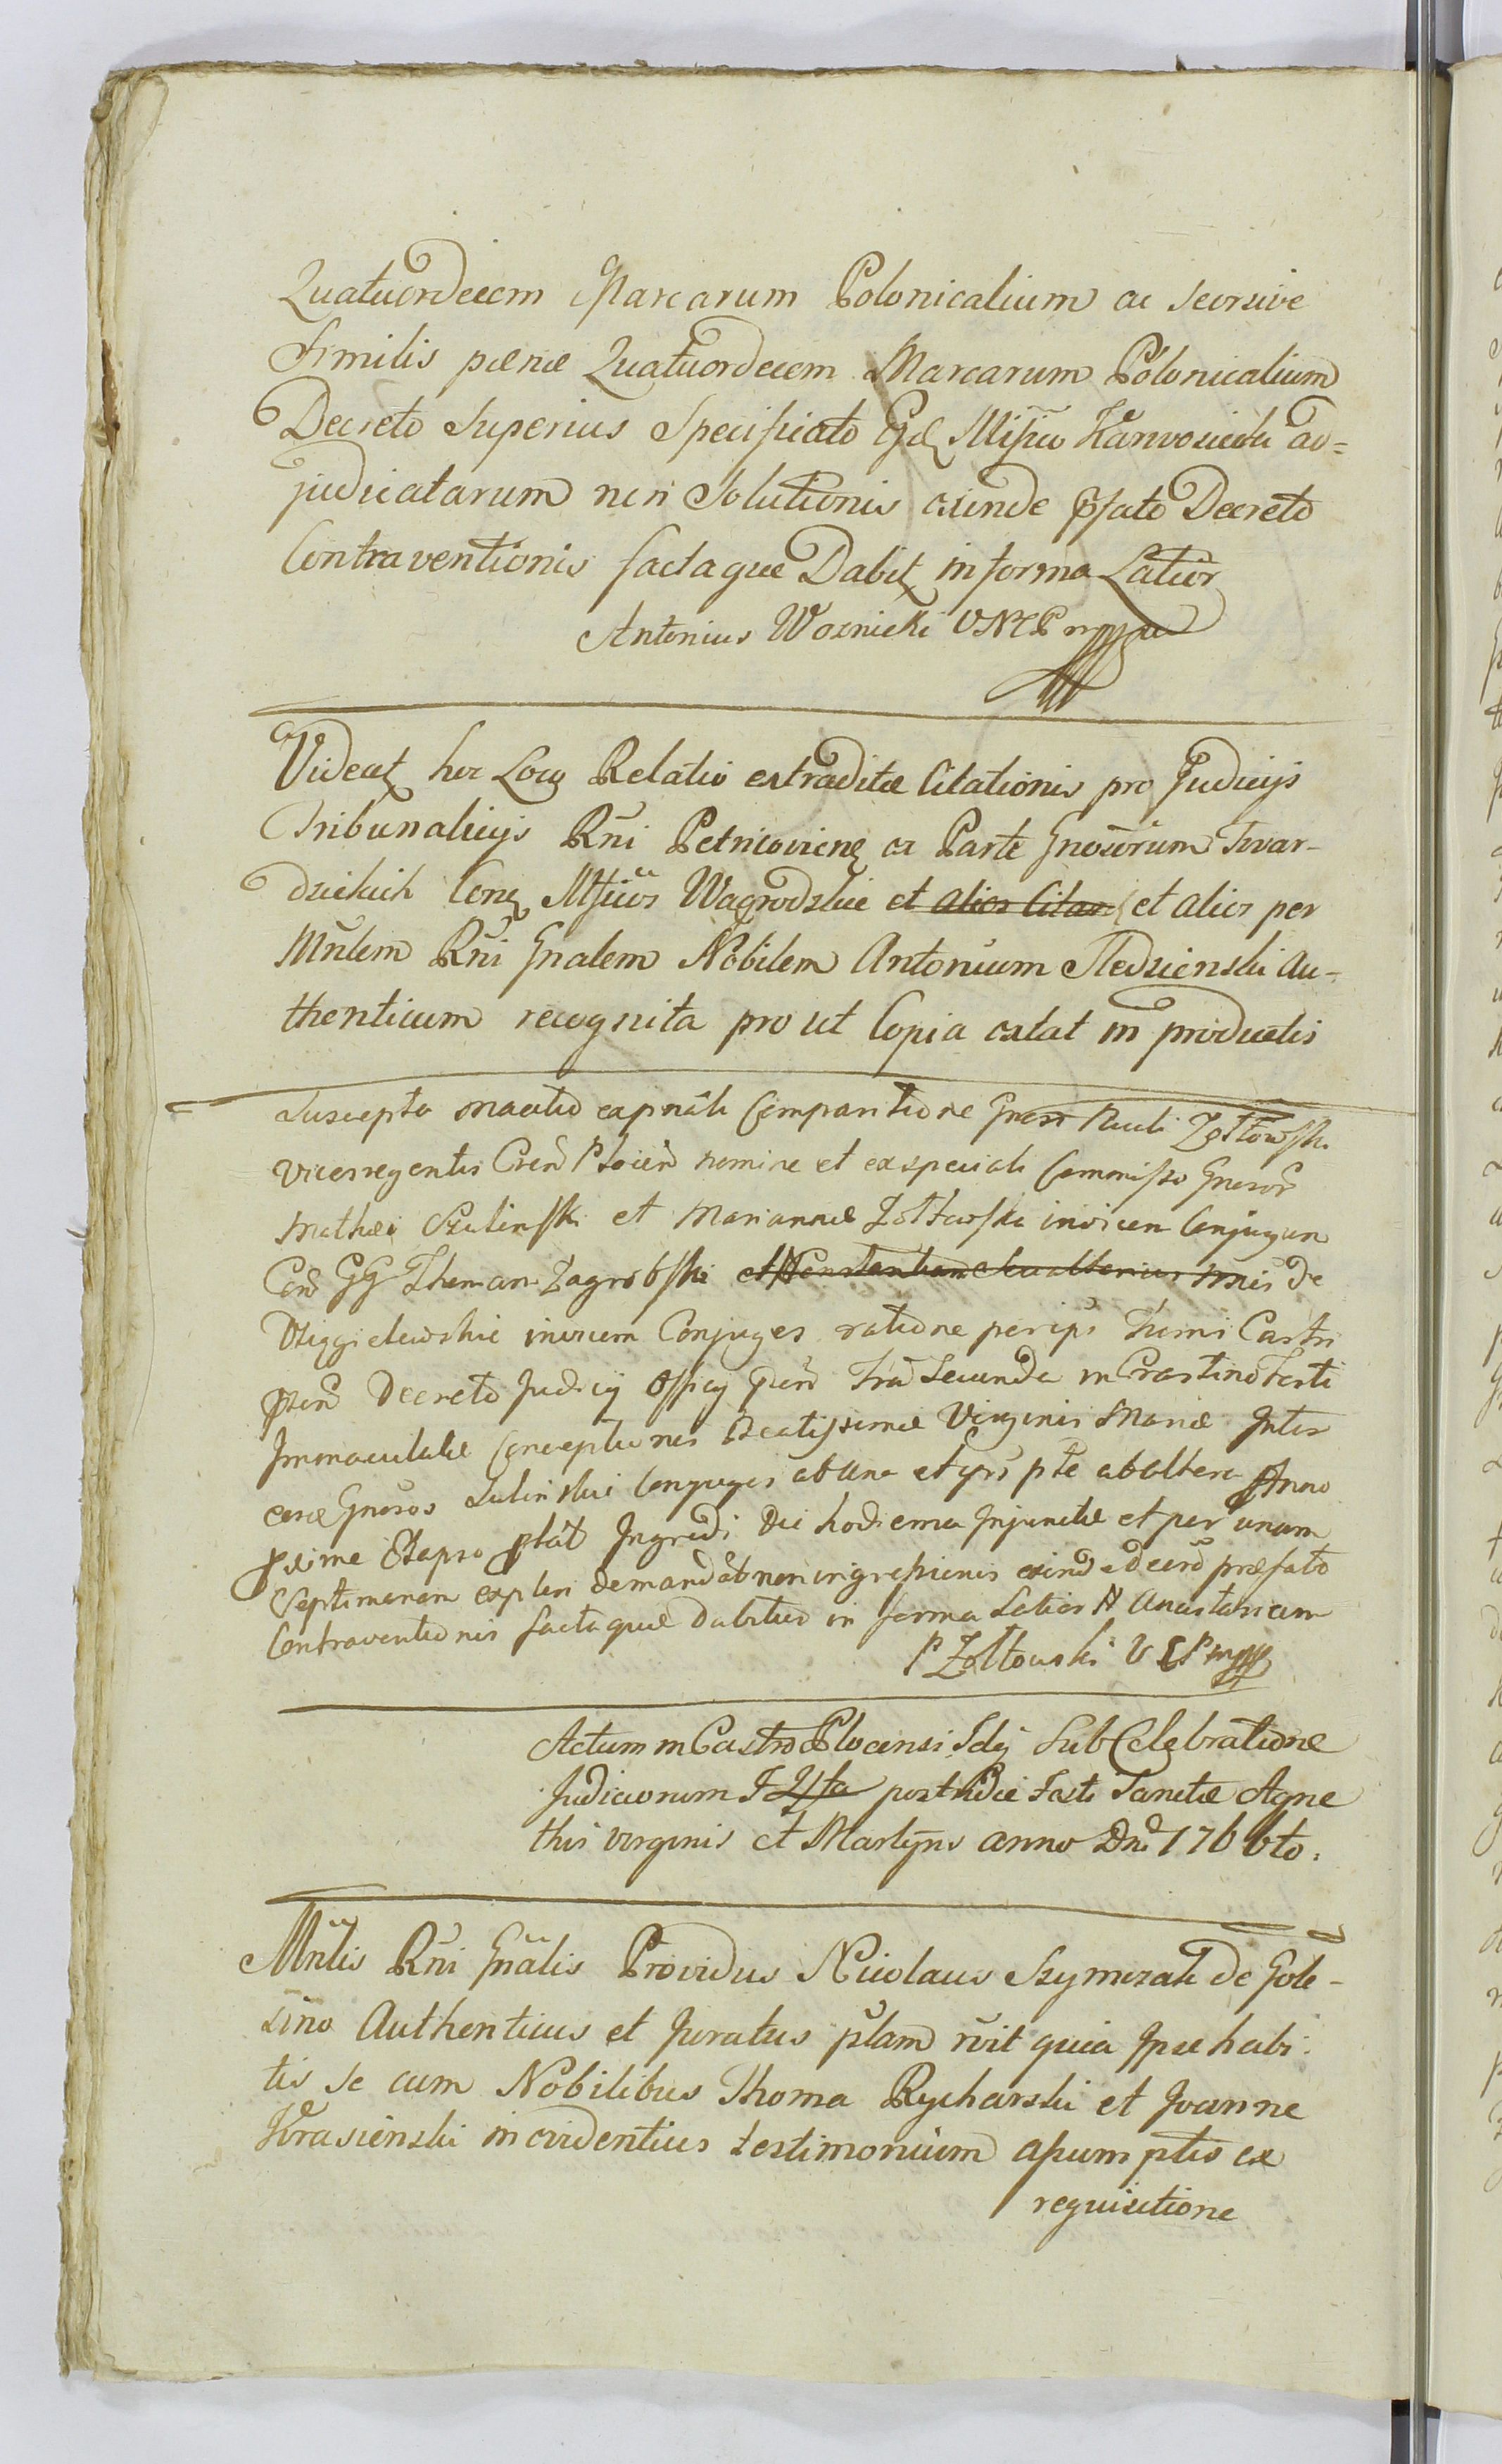 Quatuordecem Marcarum Polonicalium ac seorsive
similis pænæ Quatuordecem Marcarum Polonicalium
Decreto Superius Specificato Karwosiecki ad=
judicatarum non Solutionis exinde pfato Decreto
Contraventionis factaque Dabit in forma Latior
Antonius Woznicki VNCP mppa
Videat hoc Loco Relatio extraditæ Citationis pro Judicijs
Tribunalicijs Rni Petricovien ex Parte Gnosorum Twar-
dzickich Con Mficos Wagrodzkie et alios Citan et alios per
Mnlem Rni Gnalem Nobilem Antonium Sledzienski Au=
thenticum recognita pro ut Copia extat in productis
Suscepta comparitione Gnosi Pauli Zołtowski
Vicesregentis nomine et ex speciali Commisso Gnosor
Mathæi Szulinski et Mariannæ Zołtowska invicem Conjugum
Con GG Thoman Zagrobski et de
invicem Conjuges ratione
Decreto Judicij Officij Fria Secunda in Crastino Festi
Immaculatæ Conceptionis Beatissimæ Virginis Mariæ Inter
Gnosos Sulinskie Conjuges ab una et pte ab altera Anno
pxime Elapso plat Ingredi Die hodierna Injunctæ et per unam
Septimanam expleri demandat non ingressionis exinde præfato
Contraventionis factaque dabitur in forma Latior N Anastasium
P Zołtowski V C P mppa
Actum in Castro Plocensi Sub Celebratione
Judiciorum F 4ta postridie Festi Sanctæ Agne
this Virginis et Martyris anno Dni 1766to.
Mnlis Rni Gnalis Providus Nicolaus Szymczak de Gole-
sino Authenticus et Juratus plam rvit quia Ipse habi-
tis se cum Nobilibus Thoma Rycharski et Joanne
Krasienski in evidentius testimonium assumptis ex
requisitione